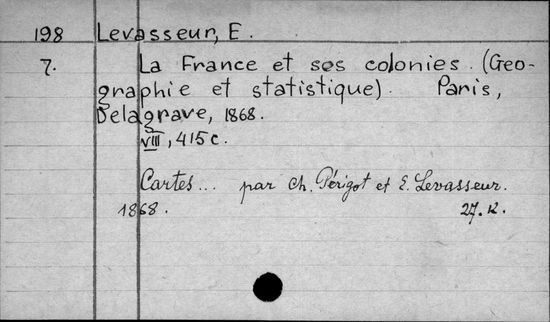 198 Levasseur, E.
7. La France et ses colonies. (Geo-
graphie et statistique). Paris,
Delagrave, 1868.
VIII, 415 c.
Cartes... par Ch. Périgot et E. Levasseur.
1868. 27. K.